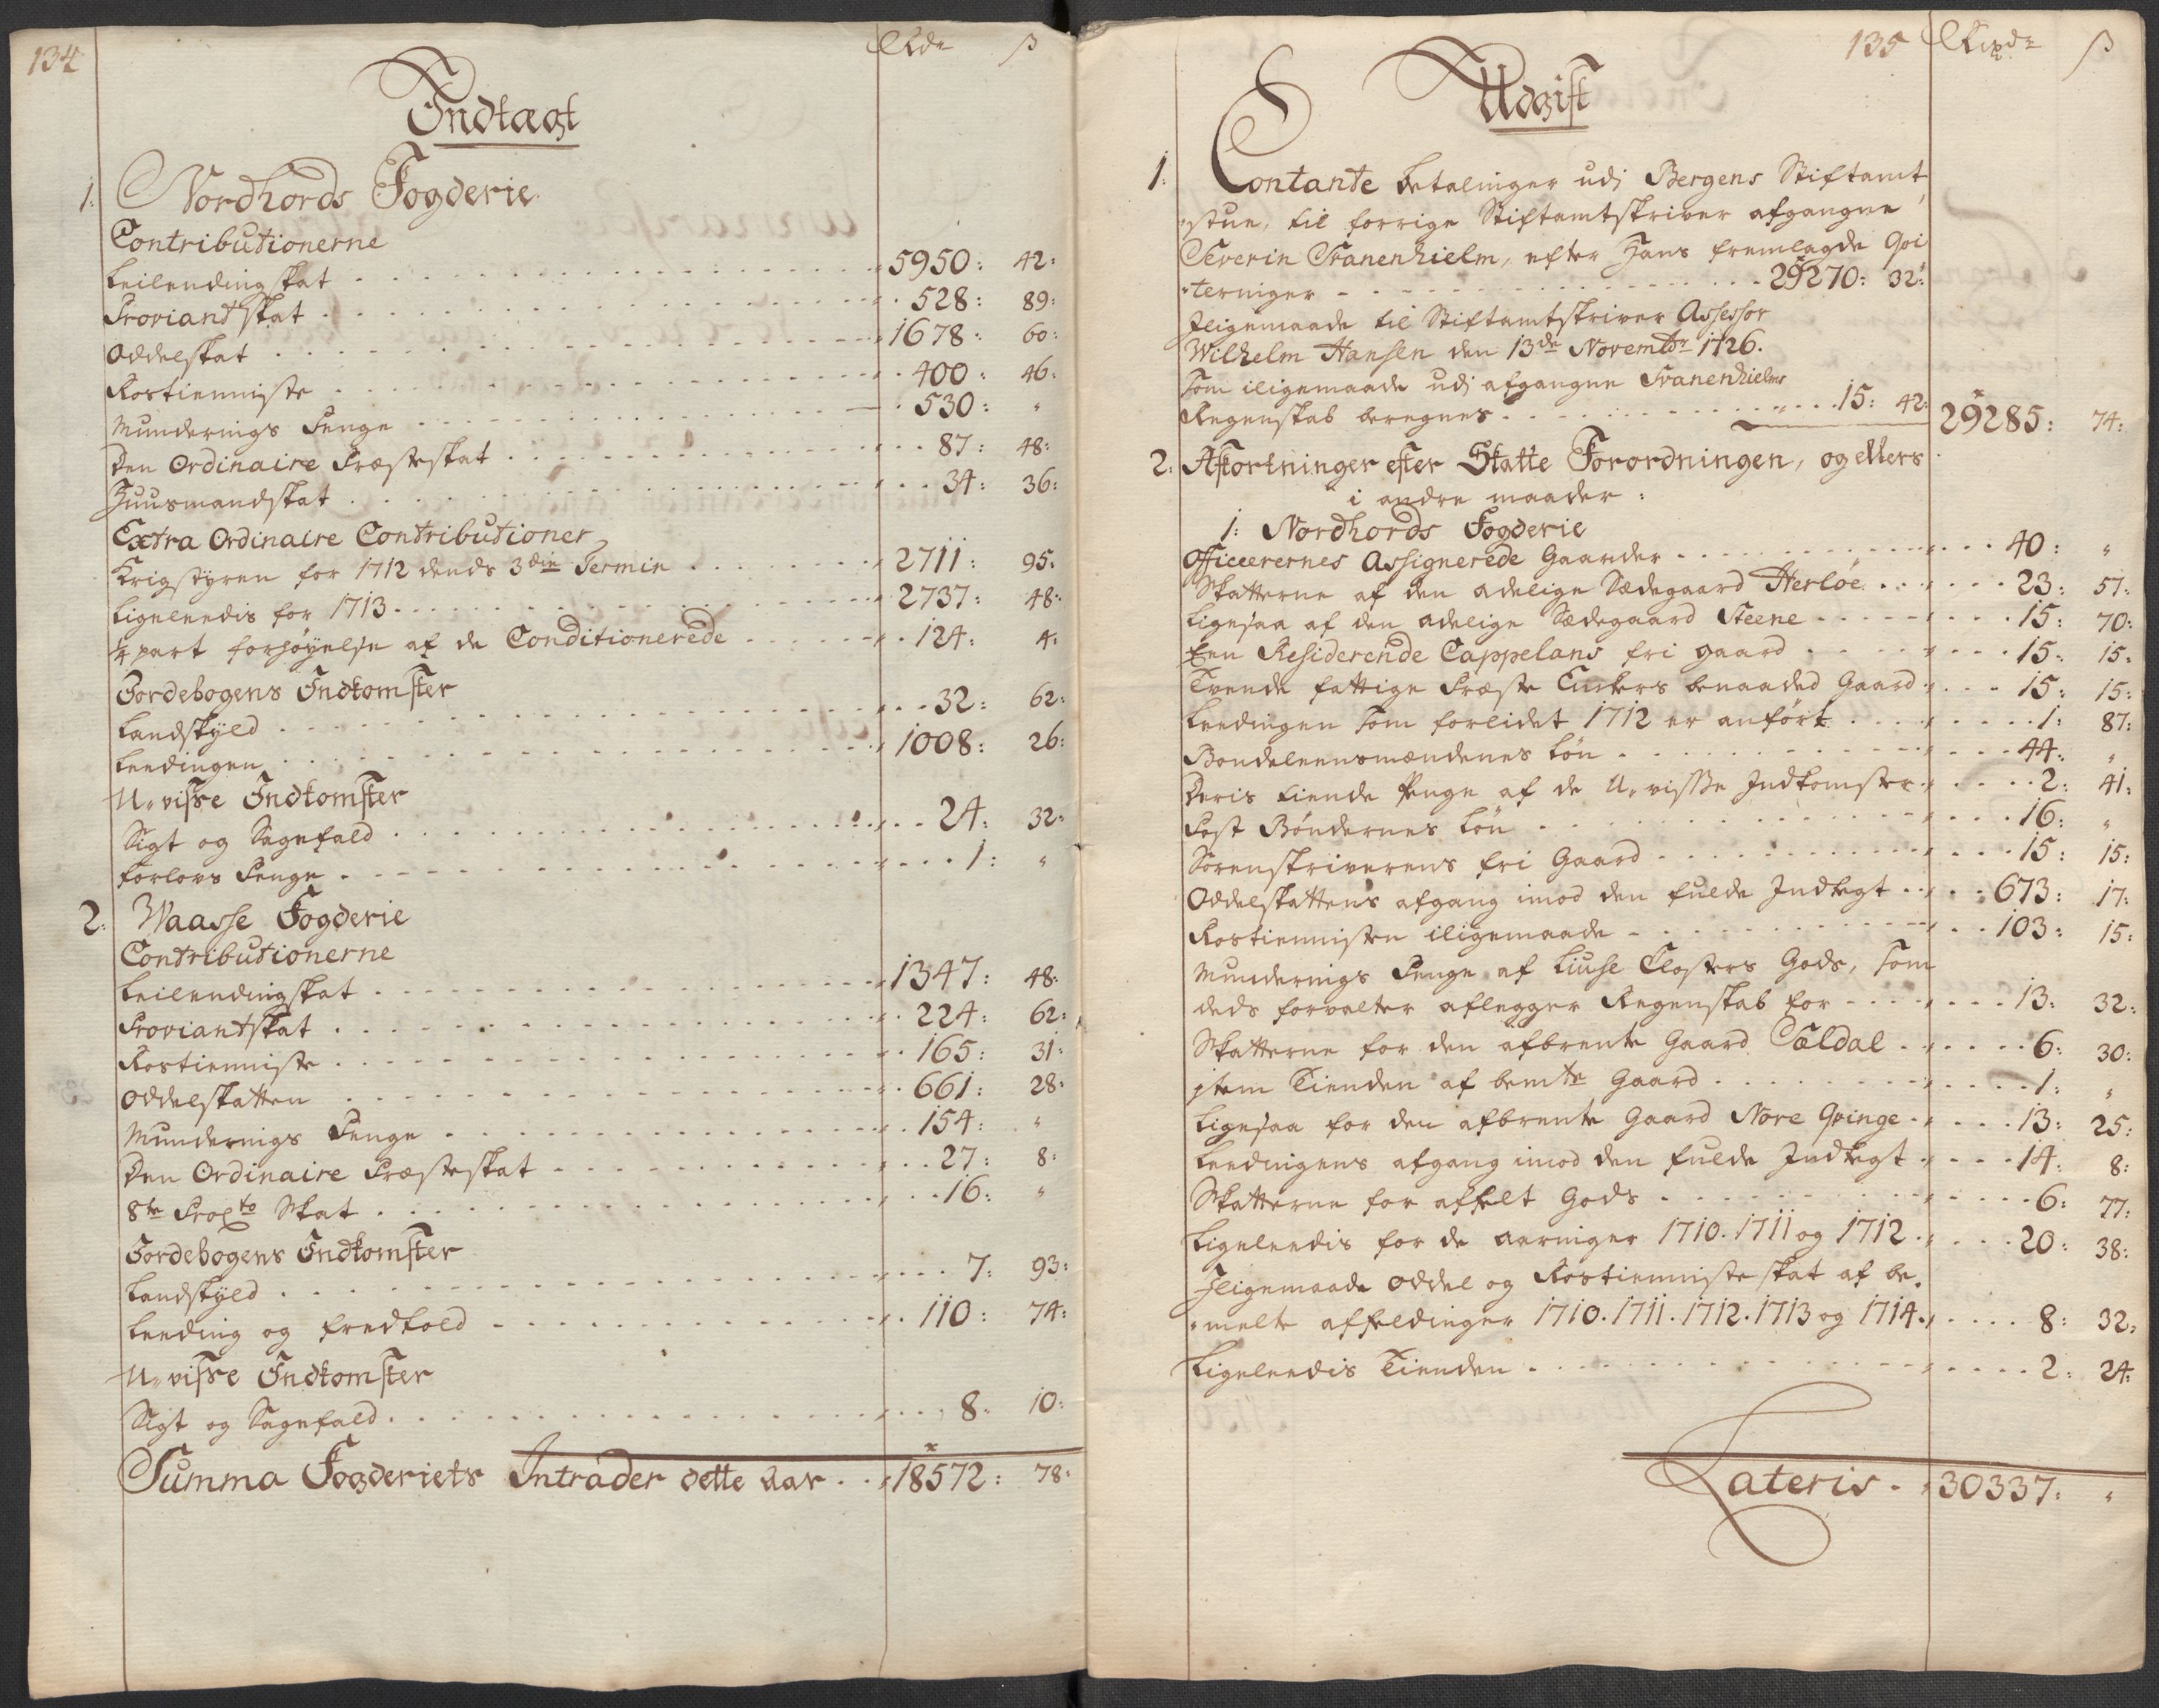 134
Rdr ß
Indtægt
1: Nordhords Fogderie
Contributionerne
Leilendingskat 5950: 42:
Proviantskat 528: 89:
Oddelskat 1678: 60:
Rostienniste 400: 46:
Munderings Penge 530: "
Den Ordinaire Præsteskat 87: 48:
Huusmandskat 34: 36:
Extra Ordinaire Contributioner
Krigstyren for 1712 dends 3die Termin 2711: 95:
Ligeleedis for 1713 2737: 48:
1/4 part forhøyelse af de Conditionerede 124: 4:
Jordebogens Indkomster
Landskyld 32: 62:
Leedingen 1008: 26:
U-visse Indkomster
Sigt og Sagefald 24: 32:
Forlovs Penge 1: "
2: Waasse Fogderie
Contributionerne
Leilendingskat 1347: 48:
Proviantskat 224: 62:
Rostienniste 165: 31:
Oddelskatten 661: 28:
Munderings Penge 154: "
Den Ordinaire Præsteskat 27: 8:
8te Procto Skat 16: "
Jordebogens Indkomster
Landskyld 7: 93:
Leeding og Fredtold 110: 74:
U-visse Indkomster
Sigt og Sagefald 8: 10:
Summa Fogderiets Intrader dette Aar 18572: 78:
135 Rixdr ß
Udgift
1: Contante betalinger udj Bergens Stiftamt
stue, til forrige Stiftamtskriver afgangne
Severin Svanenhielm, efter Hans fremlagde Qvi
terninger 29270: 32:
Iligemaade til Stiftamtskriver Assessor
Wilhelm Hansen den 13de Novembr 1726.
Som iligemaade udj afgangne Svanenhielms
Regenskab beregnes 15: 42: 29285: 74:
2: Afkortninger efter Skatte Forordningen, og ellers
i andre maader:
1: Nordhords Fogderie
Officerernes Assignerede Gaarder 40: "
Skatterne af den adelige Sædegaard Herløe 23: 57:
Ligesaa af den adelige Sædegaard Steene 15: 70:
Een Residerende Cappelans fri gaard 15: 15:
Tvende fattige Præste Enckers benaaded Gaard 15: 15:
Leedingen som forleidet 1712 er anført 1: 87:
Bondeleensmændenes Løn 44: "
Deris tiende Penge af de U-visse Indkomster 2: 41:
Post Bøndernes Løn 16: "
Sorenskriverens fri Gaard 15: 15:
Oddelskattens afgang imod den fulde Indtegt 673: 17:
Rostiennisten iligemaade 103: 15:
Munderings Penge af Liuse Closters Gods, som
deds forvalter aflegger Regenskab for 13: 32:
Skatterne for den afbrente Gaard Sældal 6: 30:
jtem Tienden af bemte Gaard 1: "
Ligesaa for den afbrente Gaard Nore Qvinge 13: 25:
Leedingens afgang imod den fulde Indtegt 14: 8:
Skatterne for affelt Gods 6: 77:
Ligeleedis for de aaringer 1710. 1711 og 1712 20: 38:
Iligemaade Oddel og Rostiennisteskat af be-
melte affeldinger 1710. 1711. 1712. 1713 og 1714 8: 32:
Ligeleedis Tienden 2: 24:
Lateris 30337: "